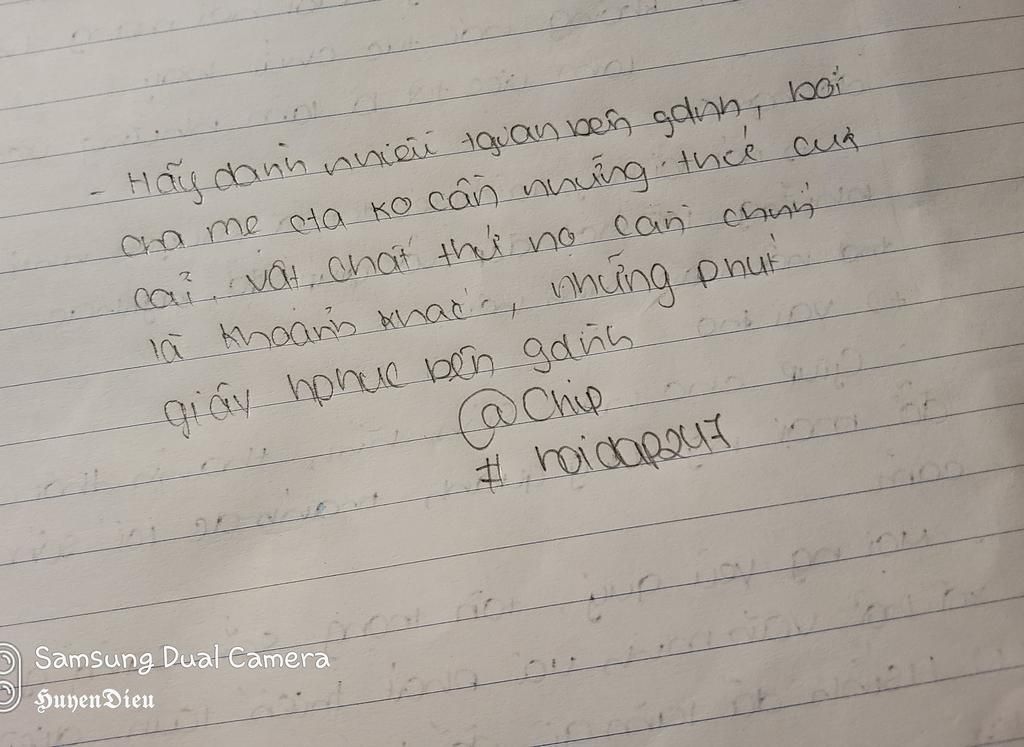 - Hãy dành nhiều tgian bên gđình, bởi
cha mẹ cta ko cần những thứ của
cải, vật chất thứ họ cần chính
là khoảnh khắc, những phút
giây hphuc bên gđình
@Chip
# hoidap247
Samsung Dual Camera
HuyenDieu